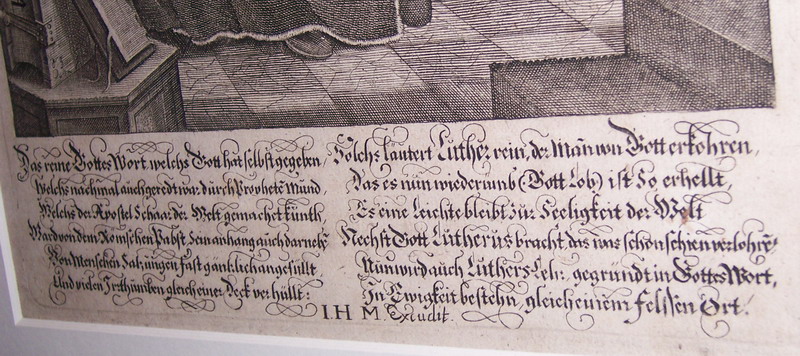 Das reine Gottes Wort, welchs Gott hat selbst gegeben,
Welchs nachmal auch geredt war durch Prophetē Mund,
Welchs der Apostel Schaar der Welt gemachet kunth,
Ward von dem Romschen Pabst, sein anhang auch darnebē
Von Menschen Satzungen fast gäntzlich angefüllt
Und vielen Irthumben gleich einer Deck verhüllt:
Solchs läutert Luther rein, der Mañ von Gott erkohren,
Das es nun wiederumb (Gott Lob) ist So erhellt,
Es eine Leichte bleibt zur Seeligkeit der Welt
Nechst Gott Lutherus bracht das was schon schien verlohrē
Nun wird auch Luthers Lehr, gegründt in Gottes Wort,
In Ewigkeit bestehn, gleich einem Felssen Ort.
I. H M Excudit.